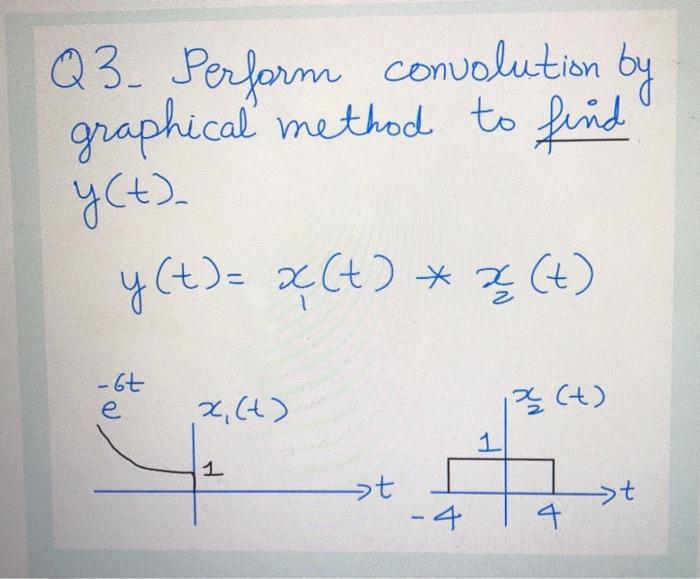 Q3- Perform convolution by
graphical method to find
y(t)-
y(t)= x₁(t) * x₂(t)
e^-6t
x₁(t)
1
t
x₂(t)
1
-4
4
t